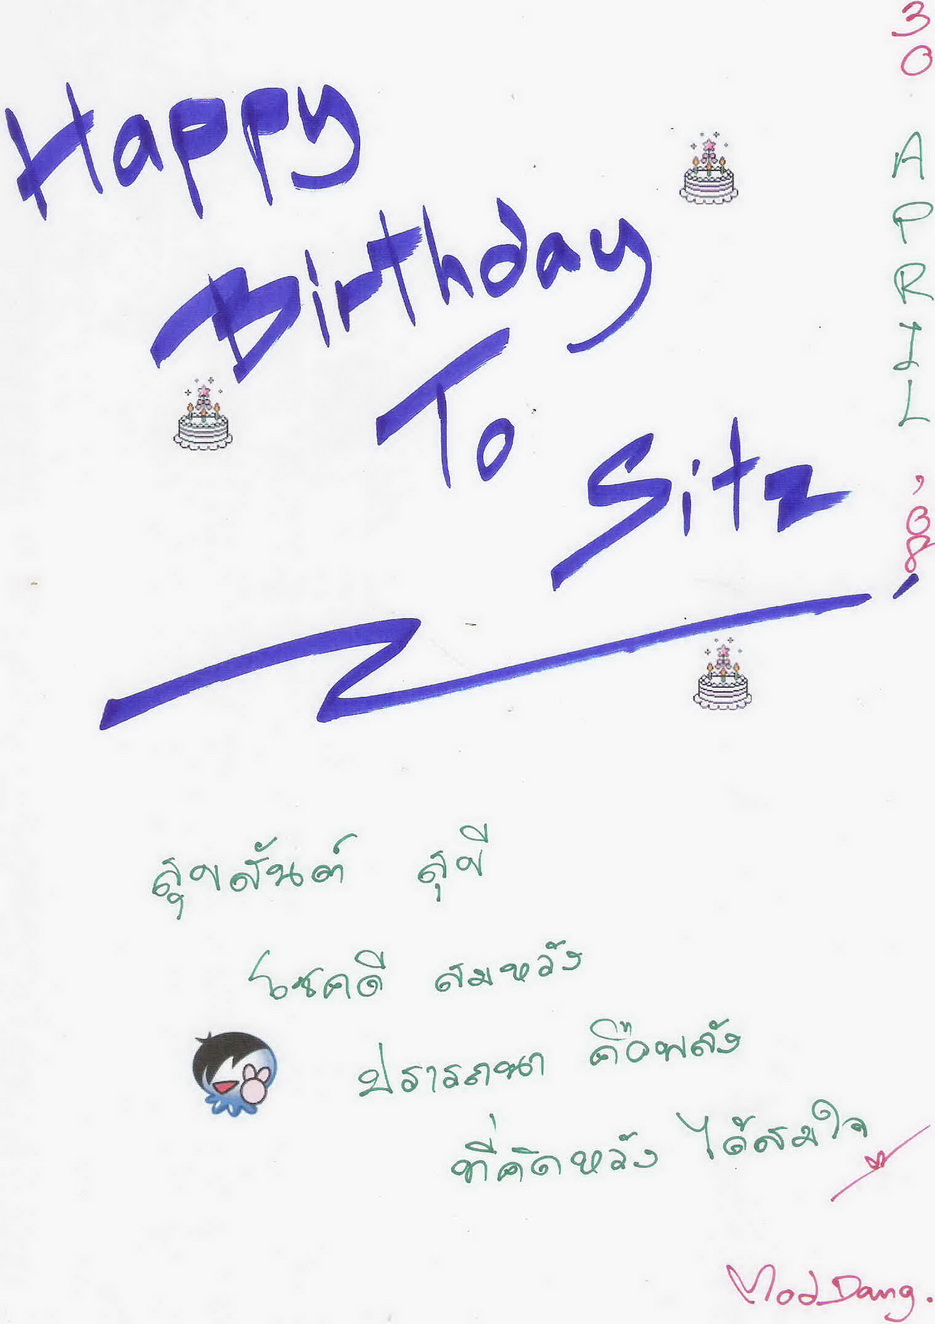 Happy
Birthday
To
Sitz
30 APRIL ,08
สุขสันต์ สุขี
โชคดี สมหวัง
ปรารถนา คือพลัง
ที่คิดหวัง ได้สมใจ
ModDang.